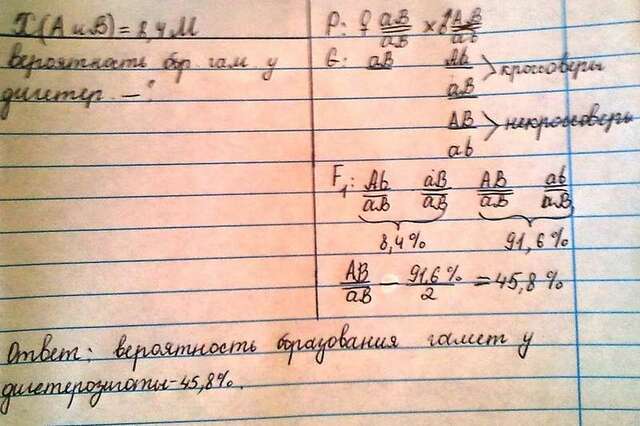 I(A и B) = 8,4 М
вероятность обр. гам. у
дигетер. – ?
P: ♀ aB/aB × ♂ AB/ab
G: aB Ab
aB
> кроссоверы
AB
ab
> некроссоверы
F1: Ab/aB aB/aB AB/aB ab/aB
8,4% 91,6%
AB/aB – 91,6%/2 = 45,8%
Ответ: вероятность образования гамет у
дигетерозиготы – 45,8%.